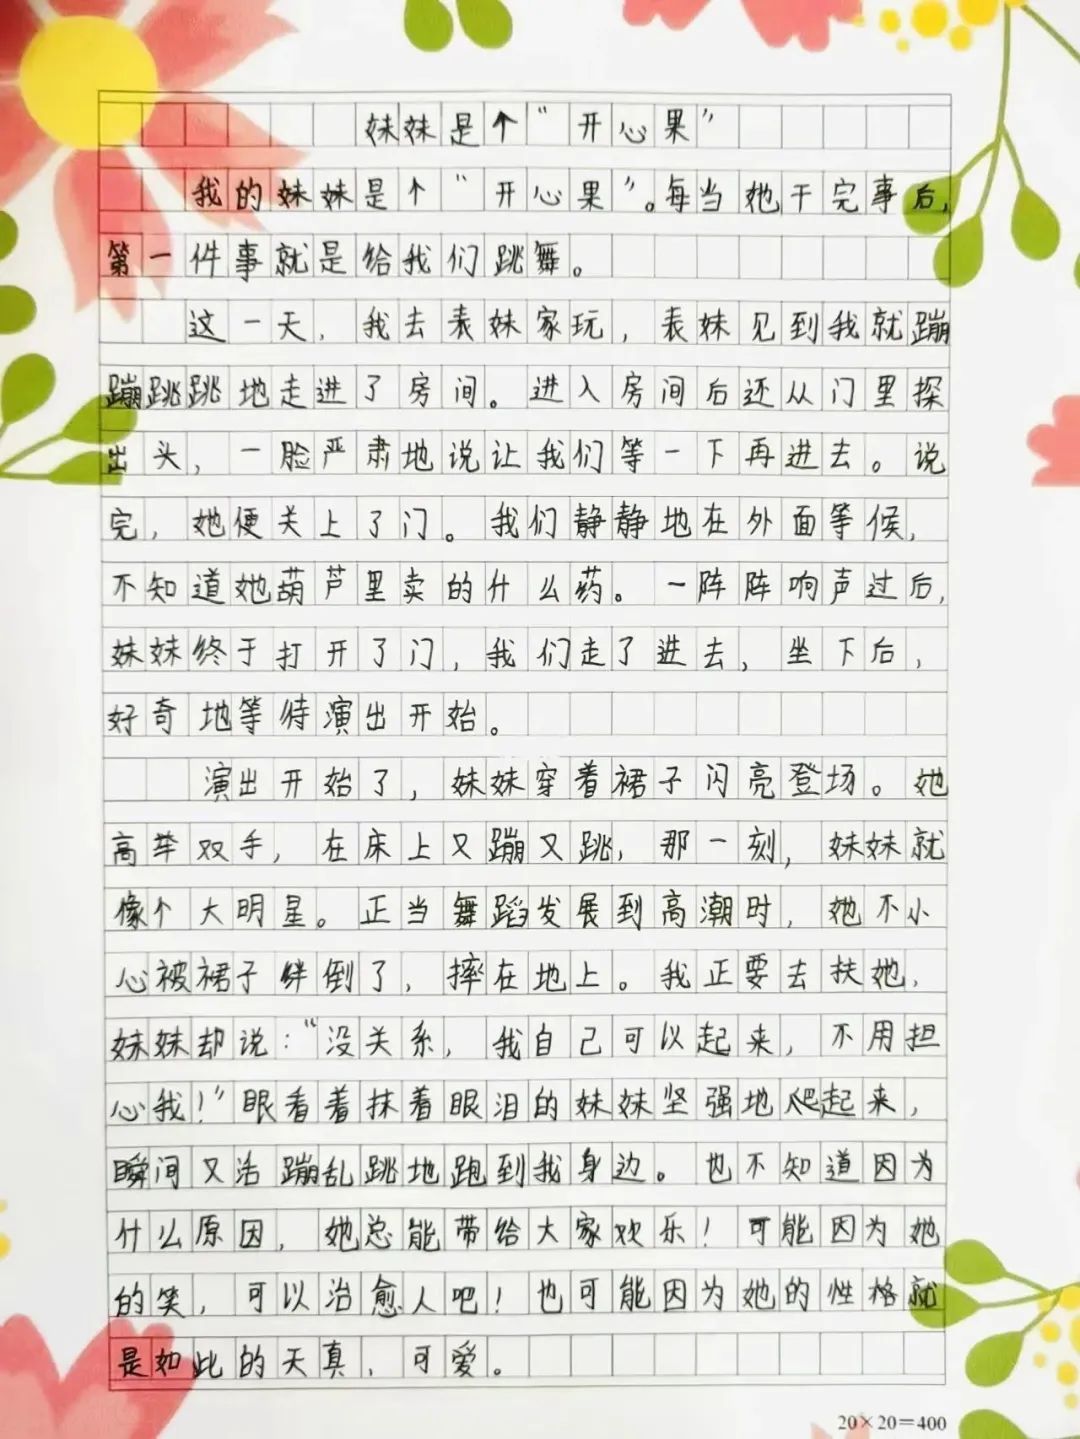 妹妹是个“开心果”
我的妹妹是个“开心果”。每当她干完事后,
第一件事就是给我们跳舞。
这一天,我去表妹家玩,表妹见到我就蹦
蹦跳跳地走进了房间。进入房间后还从门里探
出头,一脸严肃地说让我们等一下再进去。说
完,她便关上了门。我们静静地在外面等候,
不知道她葫芦里卖的什么药。一阵阵响声过后,
妹妹终于打开了门,我们走了进去,坐下后,
好奇地等待演出开始。
演出开始了,妹妹穿着裙子闪亮登场。她
高举双手,在床上又蹦又跳,那一刻,妹妹就
像个大明星。正当舞蹈发展到高潮时,她不小
心被裙子绊倒了,摔在地上。我正要去扶她,
妹妹却说:“没关系,我自己可以起来,不用担
心我!”眼看着抹着眼泪的妹妹坚强地爬起来,
瞬间又活蹦乱跳地跑到我身边。也不知道因为
什么原因,她总能带给大家欢乐!可能因为她
的笑,可以治愈人吧!也可能因为她的性格就
是如此的天真、可爱。
20×20=400